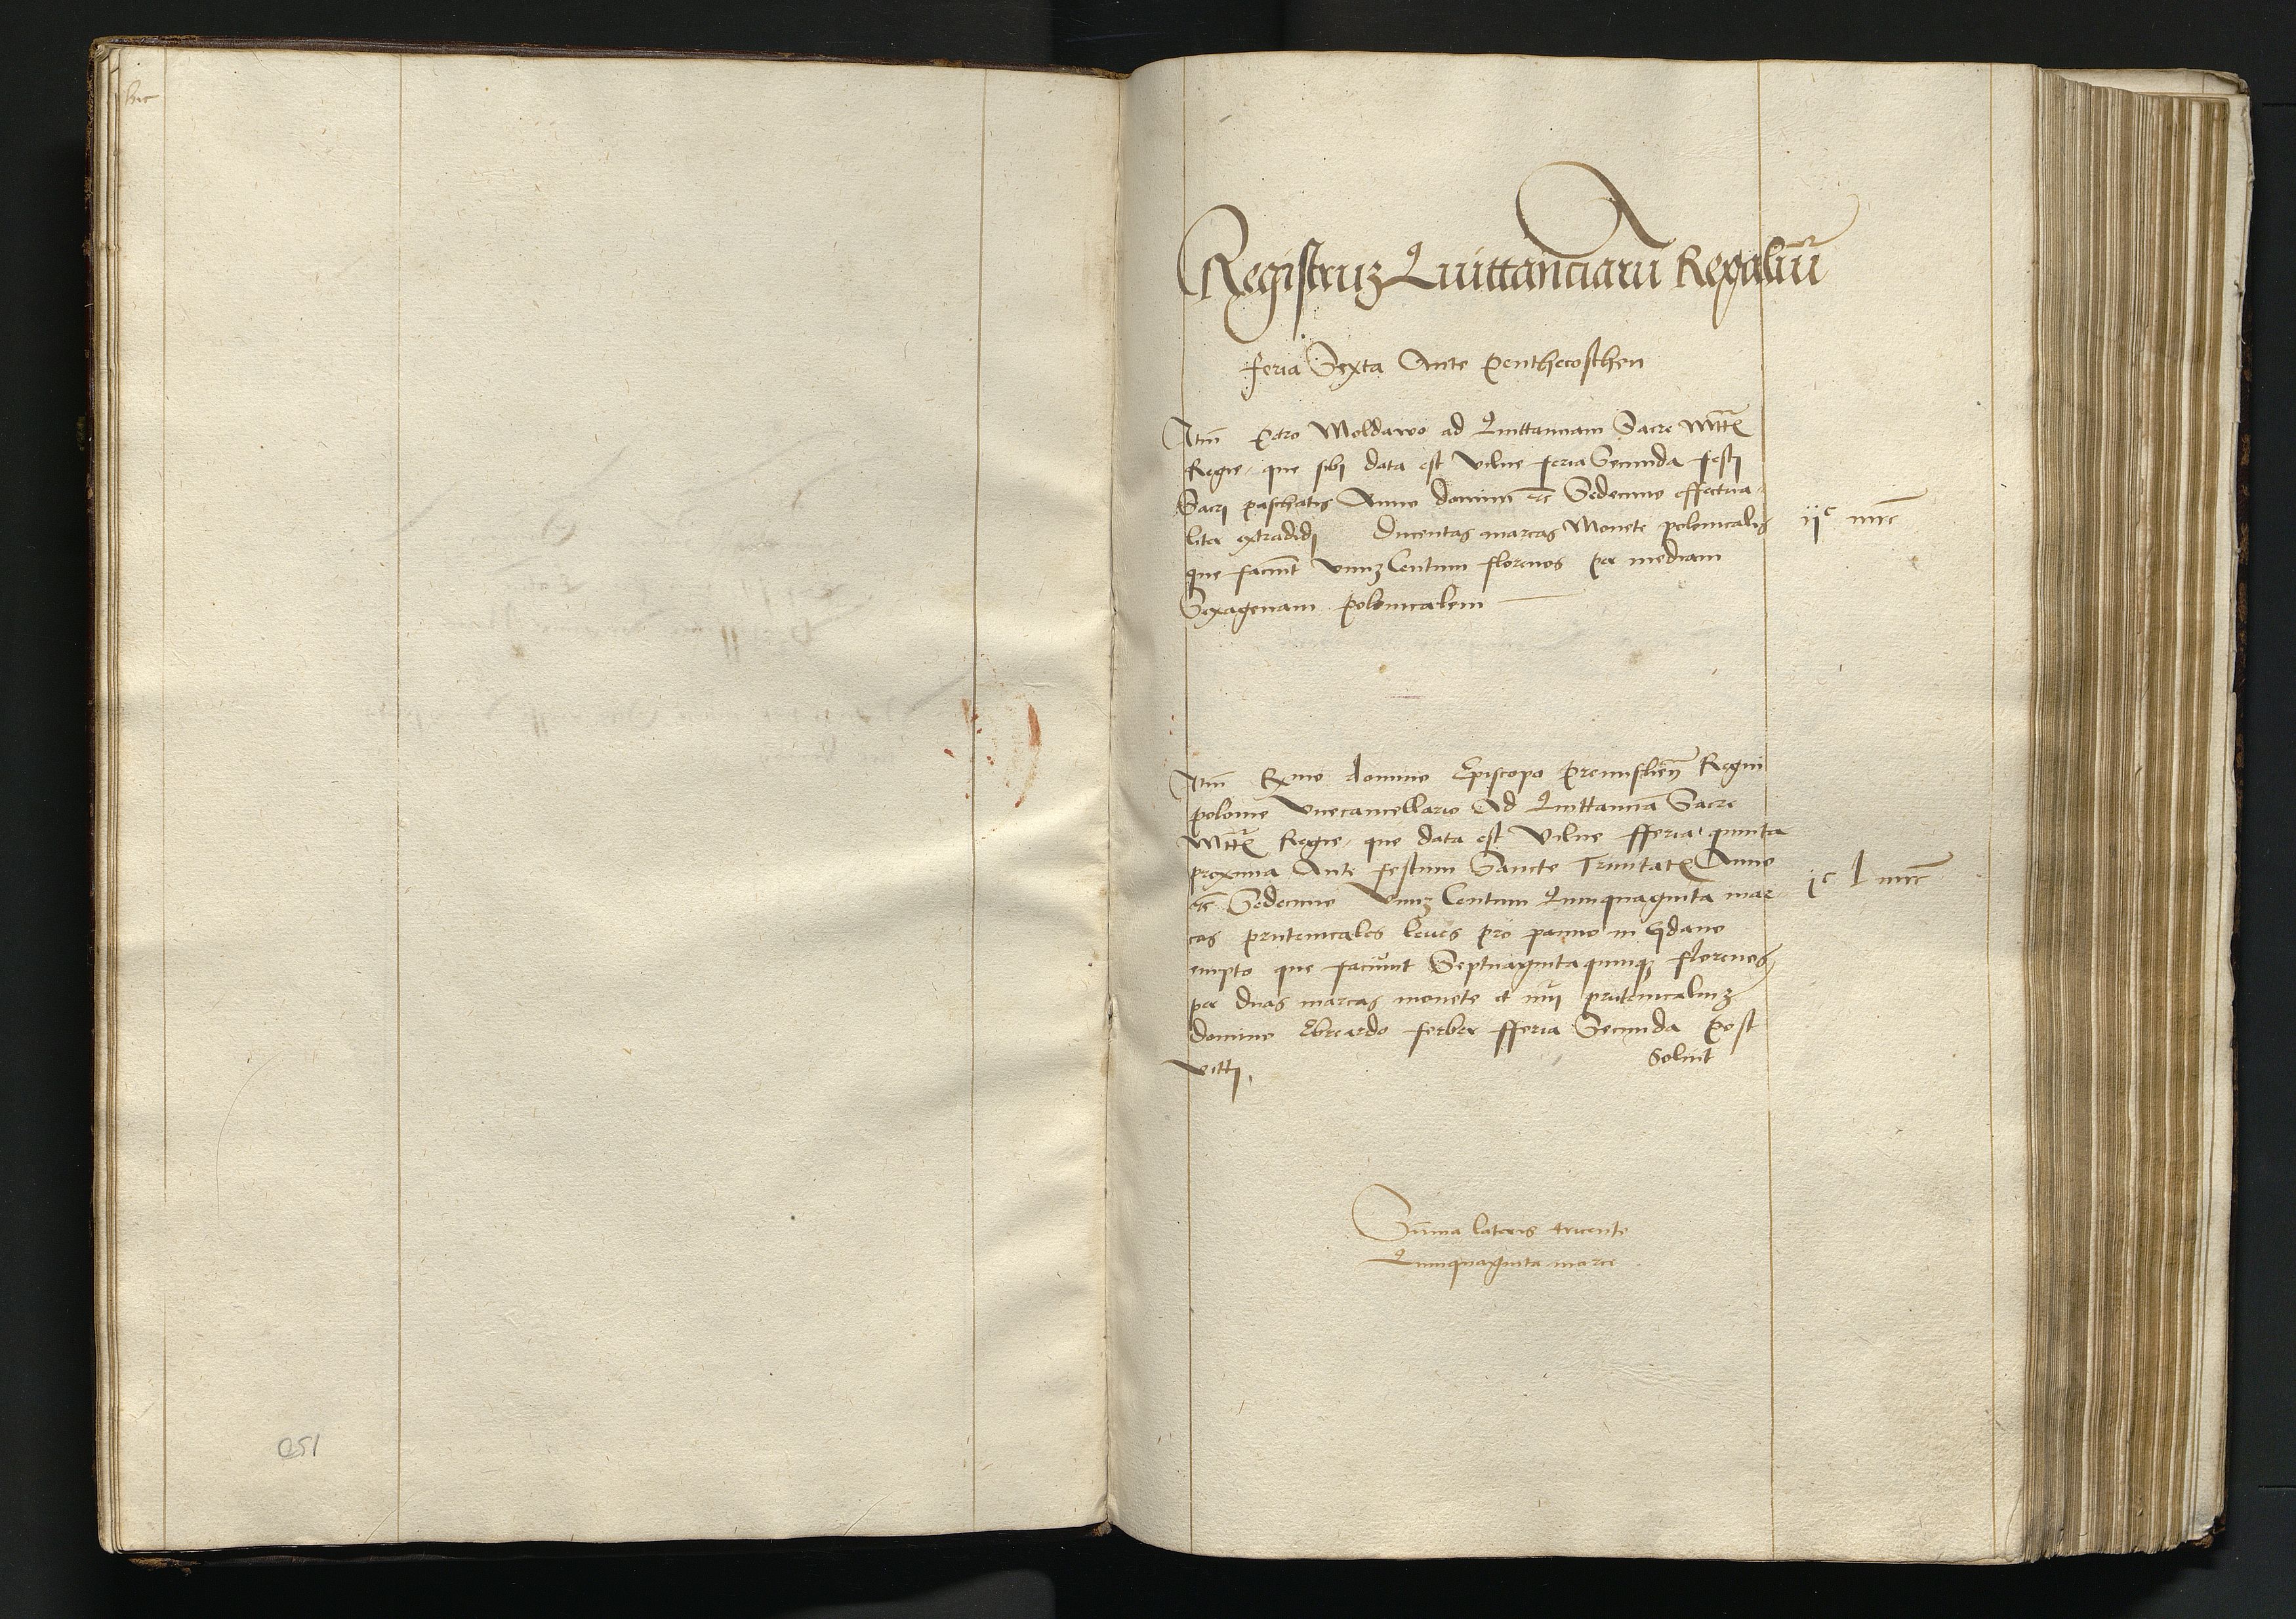 Registrum Quittanciarum Regalium
feria Sexta Ante penthecosthen
Itm̄ Petro Moldawo ad Quittanciam Sacre Mttʒ
Regie, que sibj data est vilne feria Secunda festj
Sacri paschatis Anno domini etc Sedecimo effectua-
liter extradidj Ducentas marcas Monete polonicalis
que faciunt vnuʒ Centum florenos per mediam
Sexagenam polonicalem
ijᶜ mrc
Itm̄ Rmo domino Episcopo premislien̄ Regni
polonie vicecancellario Ad Quittanciā Sacre
Mttʒ Regie, que data est Vilne fferia quinta
proxima Ante festum Sancte Trinitatʒ Anno
etc Sedecimo vnuʒ Centum Quinquaginta mar-
cas prutenicales leues pro panno in gdano
empto que faciunt Septuagintaquinqʒ florenos
per duas marcas monete et mrj prutenicaliuʒ
domino Ebreardo ferber fferia Secunda post
vittj, Soluit
jᶜ l mrc
Sum̄a lateris tricente
Quinquaginta marce
150